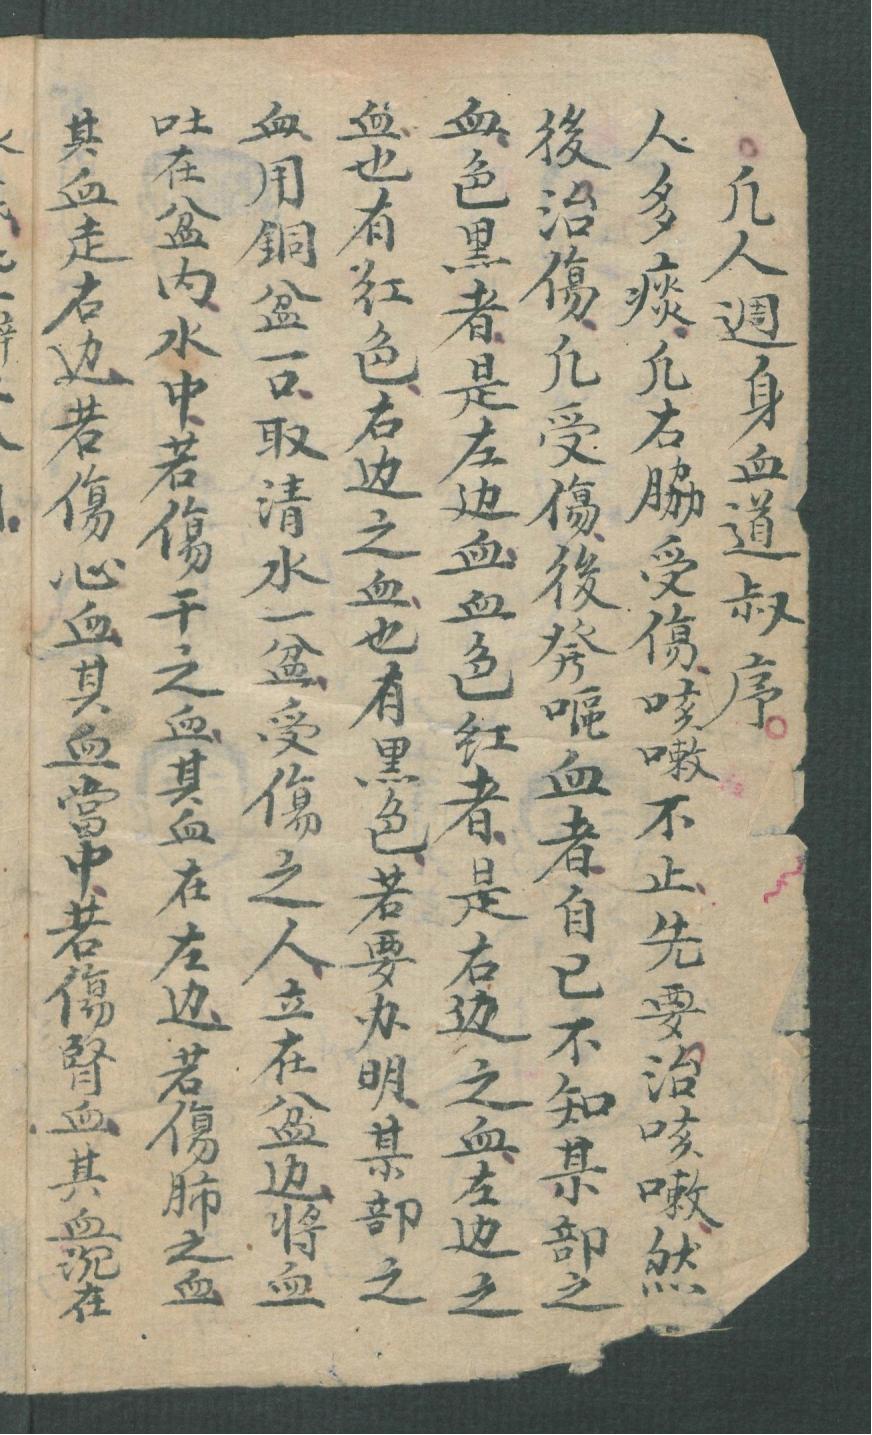 凢人週身血道叔序
人多痰凢右脇受傷咳嗽不止先要治咳嗽然
後治傷凢受傷後発嘔血者自已不知某部之
血色黑者是左边血血色红者是右边之血左边之
血也有红色右边之血也有黑色若要办明某部之
血用銅盆一口取清水一盆受傷之人立在盆边将血
吐在盆内水中若傷干之血其血在左边若傷肺之血
其血走右边若傷心血其血當中若傷腎血其血沉在